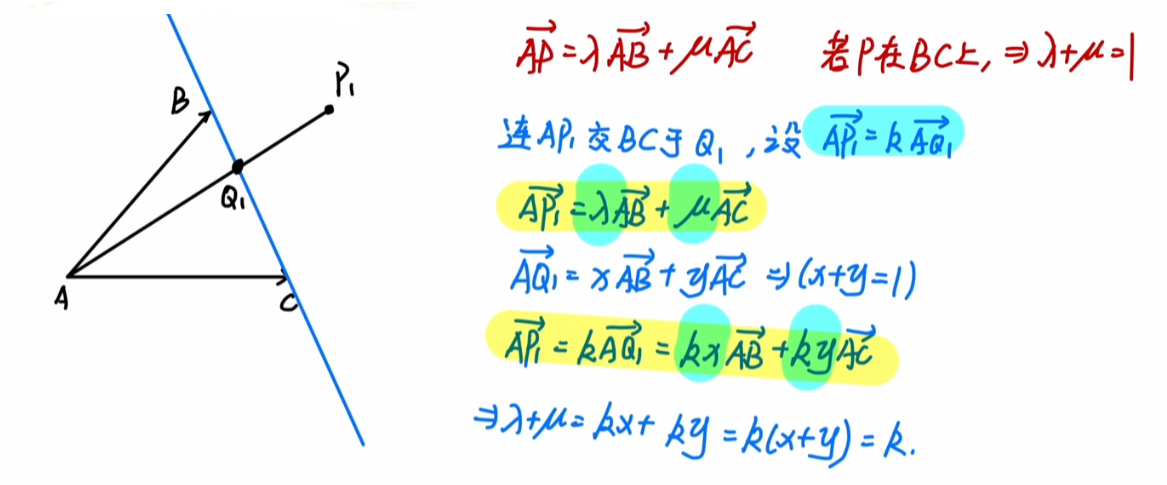 B
P₁
Q₁
A
C
$\overrightarrow{AP}=\lambda\overrightarrow{AB}+\mu\overrightarrow{AC}$ 若P在BC上,⇒λ+μ=1
连AP₁交BC于Q₁,设 $\overrightarrow{AP_1}=k\overrightarrow{AQ_1}$
$\overrightarrow{AP_1}=\lambda\overrightarrow{AB}+\mu\overrightarrow{AC}$
$\overrightarrow{AQ_1}=x\overrightarrow{AB}+y\overrightarrow{AC}$ ⇒(x+y=1)
$\overrightarrow{AP_1}=k\overrightarrow{AQ_1}=kx\overrightarrow{AB}+ky\overrightarrow{AC}$
⇒λ+μ=kx+ky=k(x+y)=k.